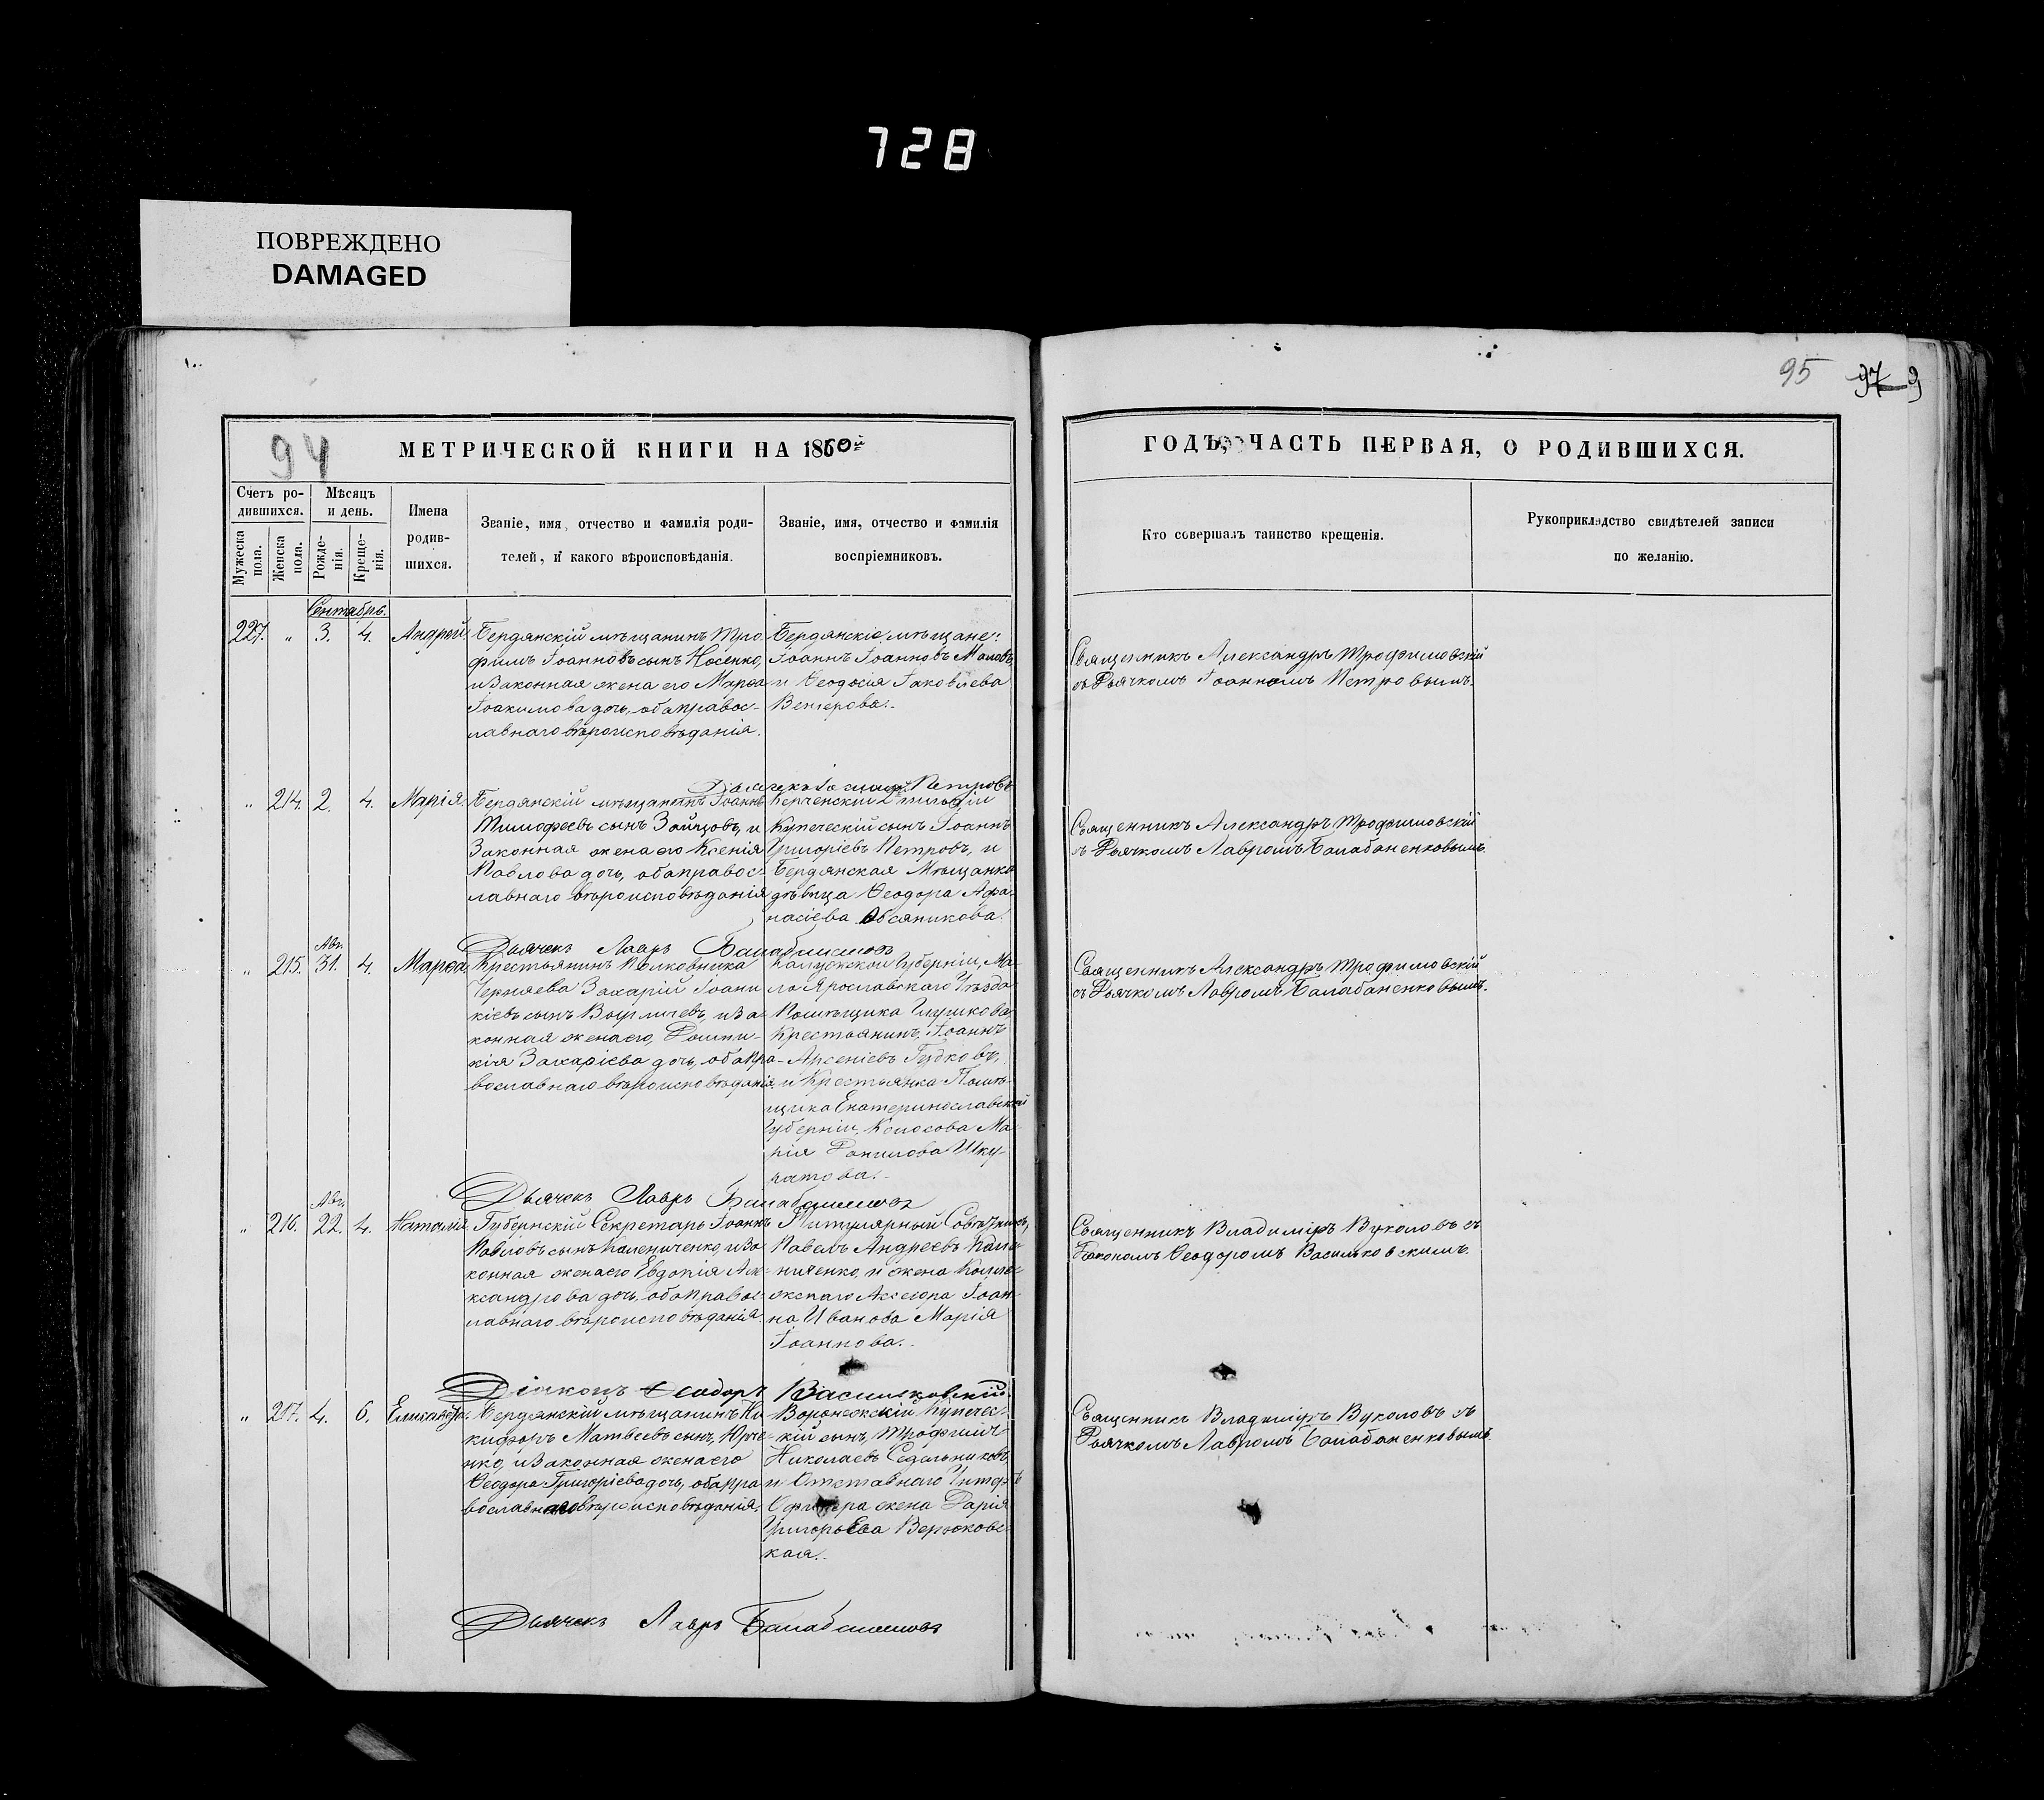 728
ПОВРЕЖДЕНО
DAMAGED
95 97 9
94
МЕТРИЧЕСКОЙ КНИГИ НА 1860й
ГОДЪ, ЧАСТЬ ПЕРВАЯ, О РОДИВШИХСЯ.
Счетъ ро-
дившихся.
Мѣсяцъ
и день.
Мужеска
пола.
Женска
пола.
Рожде-
нія.
Креще-
нія.
Имена
родив-
шихся.
Званіе, имя, отчество и фамилія роди-
телей, и какого вѣроисповѣданія.
Званіе, имя, отчество и фамилія
воспріемниковъ.
Кто совершалъ таинство крещенія.
Рукоприкладство свидѣтелей записи
по желанію.
Сентябрь.
227. „ 3. 4. Андрей.
Бердянскій мѣщанинъ Тро-
фимъ Іоанновъ сынъ Носенко,
и законная жена его Марѳа
Іоакимова дочь, оба правос-
лавнаго вѣроисповѣданія.
Бердянскіе мѣщане:
Іоаннъ Іоанновъ Маловъ
и Ѳеодосія Іаковлева
Венгерова.
Священникъ Александръ Трофимовскій
съ Дьячкомъ Іоанномъ Петровымъ.
Петровъ
„ 214. 2. 4. Марія.
Бердянскій мѣщанинъ Іоаннъ
Тимофеевъ сынъ Зайцовъ, и
Законная жена его Ксенія
Павлова дочь, оба правос-
лавнаго вѣроисповѣданія
Керченскій 2 гильдіи
Купеческій сынъ Іоаннъ
Григоріевъ Петровъ, и
Бердянская Мѣщанка
дѣвица Ѳеодора Афа-
насіева Овсяникова.
Священникъ Александръ Трофимовскій
съ Дьячкомъ Лавромъ Балабаненковымъ.
Дьячекъ Лавръ Балабаненковъ
„ 215. Авг. 31. 4. Марѳа
Крестьянинъ Полковника
Черняева Захарій Іоани-
кіевъ сынъ и за-
конная жена его,
кія Захаріева дочь, оба пра-
вославнаго вѣроисповѣданія
Калужской Губерніи, Ма-
ло Ярославскаго Уѣзда
Помѣщика Глушкова
Крестьянинъ, Іоаннъ
Арсеніевъ Гудковъ,
и Крестьянка Помѣ-
щика Екатеринославской
Губерніи, Колосова Ма-
рія Данилова Шку-
ратова.
Священникъ Александръ Трофимовскій
съ Дьячкомъ Лавромъ Балабаненковымъ.
Дьячекъ Лавръ Балабаненковъ
„ 216. Авг. 22. 4. Наталія
Губернскій Секретарь Іоаннъ
Павловъ сынъ Калениченко, и за-
конная жена его Евдокія Але-
ксандрова дочь, оба правос-
лавнаго вѣроисповѣданія.
Титулярный Совѣтникъ,
Павелъ Андреевъ Кале-
ниченко, и жена Колле-
жскаго Ассесора Іоан-
на Иванова Марія
Іоаннова.
Священникъ Владиміръ Вуколовъ съ
Діакономъ Ѳеодоромъ Васильковскимъ.
Діаконъ Ѳеодоръ Васильковскій.
„ 217. 4. 6. Елисавета.
Бердянскій мѣщанинъ Ни-
кифоръ Матвеевъ сынъ, Юрче-
нко, и законная жена его
Ѳеодора Григоріева дочь, оба пра-
вославнаго вѣроисповѣданія.
Воронежскій Купечес-
кій сынъ, Трофимъ
Николаевъ Седельниковъ,
и Отставнаго Унтеръ
Офицера жена Дарія
Григорьева Верюковс-
кая.
Священникъ Владиміръ Вуколовъ съ
Дьячкомъ Лавромъ Балабаненковымъ.
Дьячекъ Лавръ Балабаненковъ